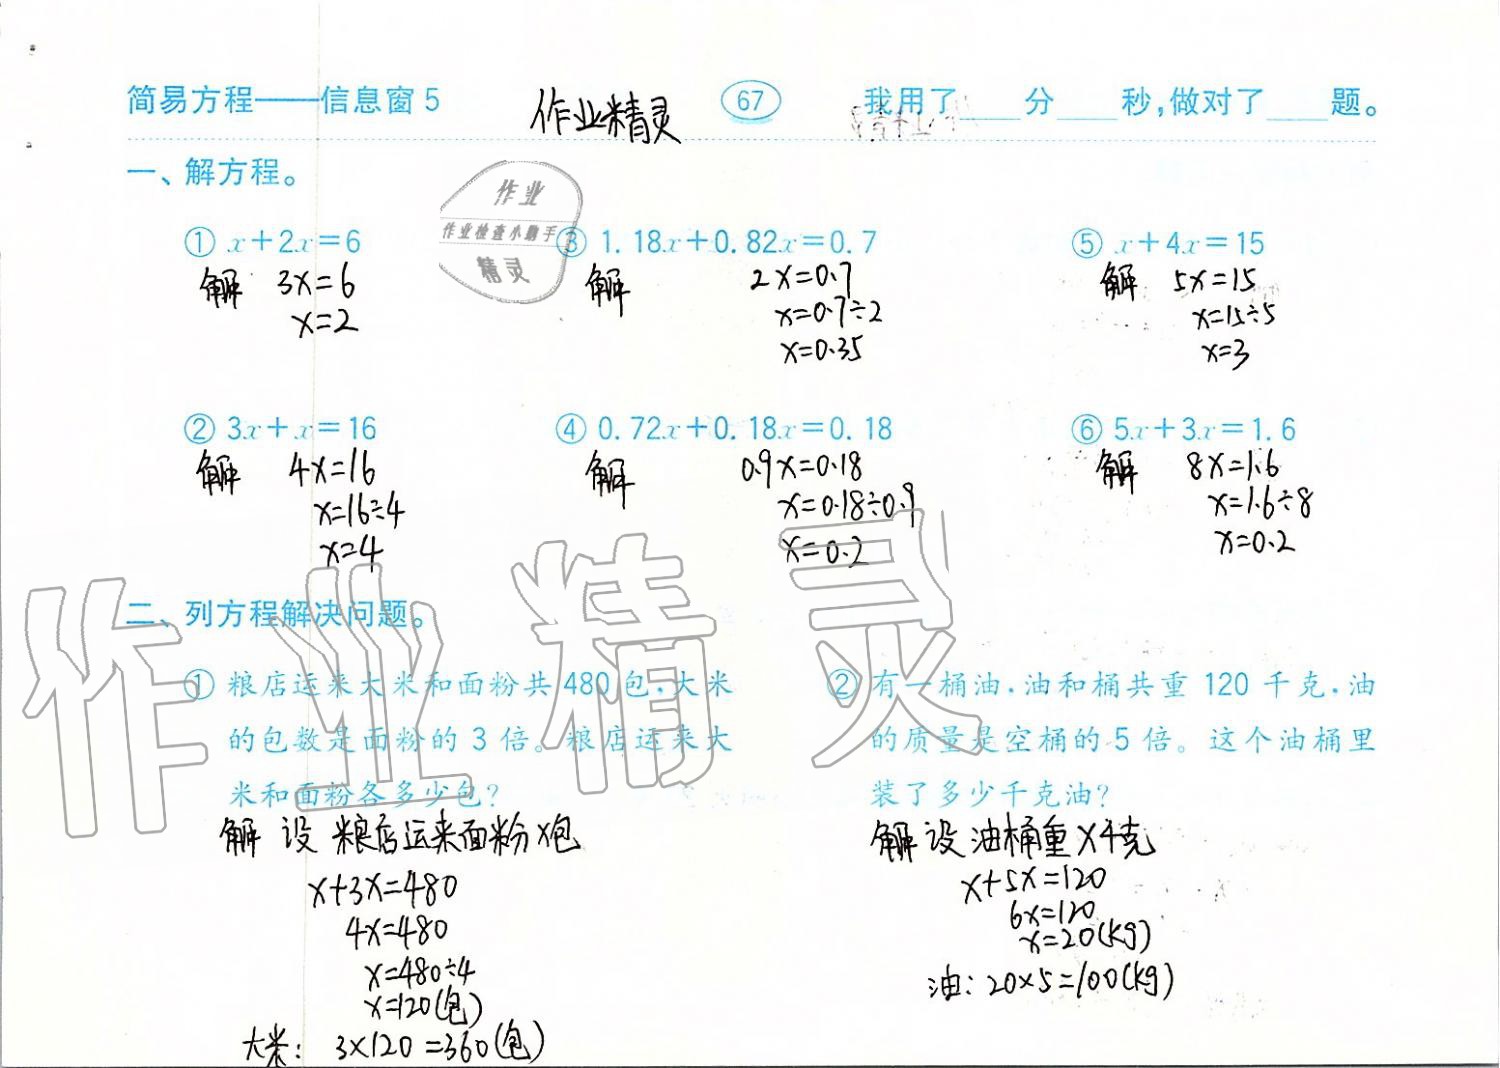 简易方程——信息窗5 作业精灵 67 我用了____分____秒,做对了____题。
一、解方程。
作业
作业检查小助手
精灵
① x+2x=6 ③ 1.18x+0.82x=0.7 ⑤ x+4x=15
解 3x=6 解 2x=0.7 解 5x=15
x=2 x=0.7÷2 x=15÷5
x=0.35 x=3
② 3x+x=16 ④ 0.72x+0.18x=0.18 ⑥ 5x+3x=1.6
解 4x=16 解 0.9x=0.18 解 8x=1.6
x=16÷4 x=0.18÷0.9 x=1.6÷8
x=4 x=0.2 x=0.2
作业精灵
二、列方程解决问题。
① 粮店运来大米和面粉共480包,大米
的包数是面粉的3倍。粮店运来大
米和面粉各多少包?
解 设 粮店运来面粉x包
x+3x=480
4x=480
x=480÷4
x=120(包)
大米: 3×120=360(包)
② 有一桶油,油和桶共重120千克,油
的质量是空桶的5倍。这个油桶里
装了多少千克油?
解 设 油桶重x千克
x+5x=120
6x=120
x=20(kg)
油: 20×5=100(kg)